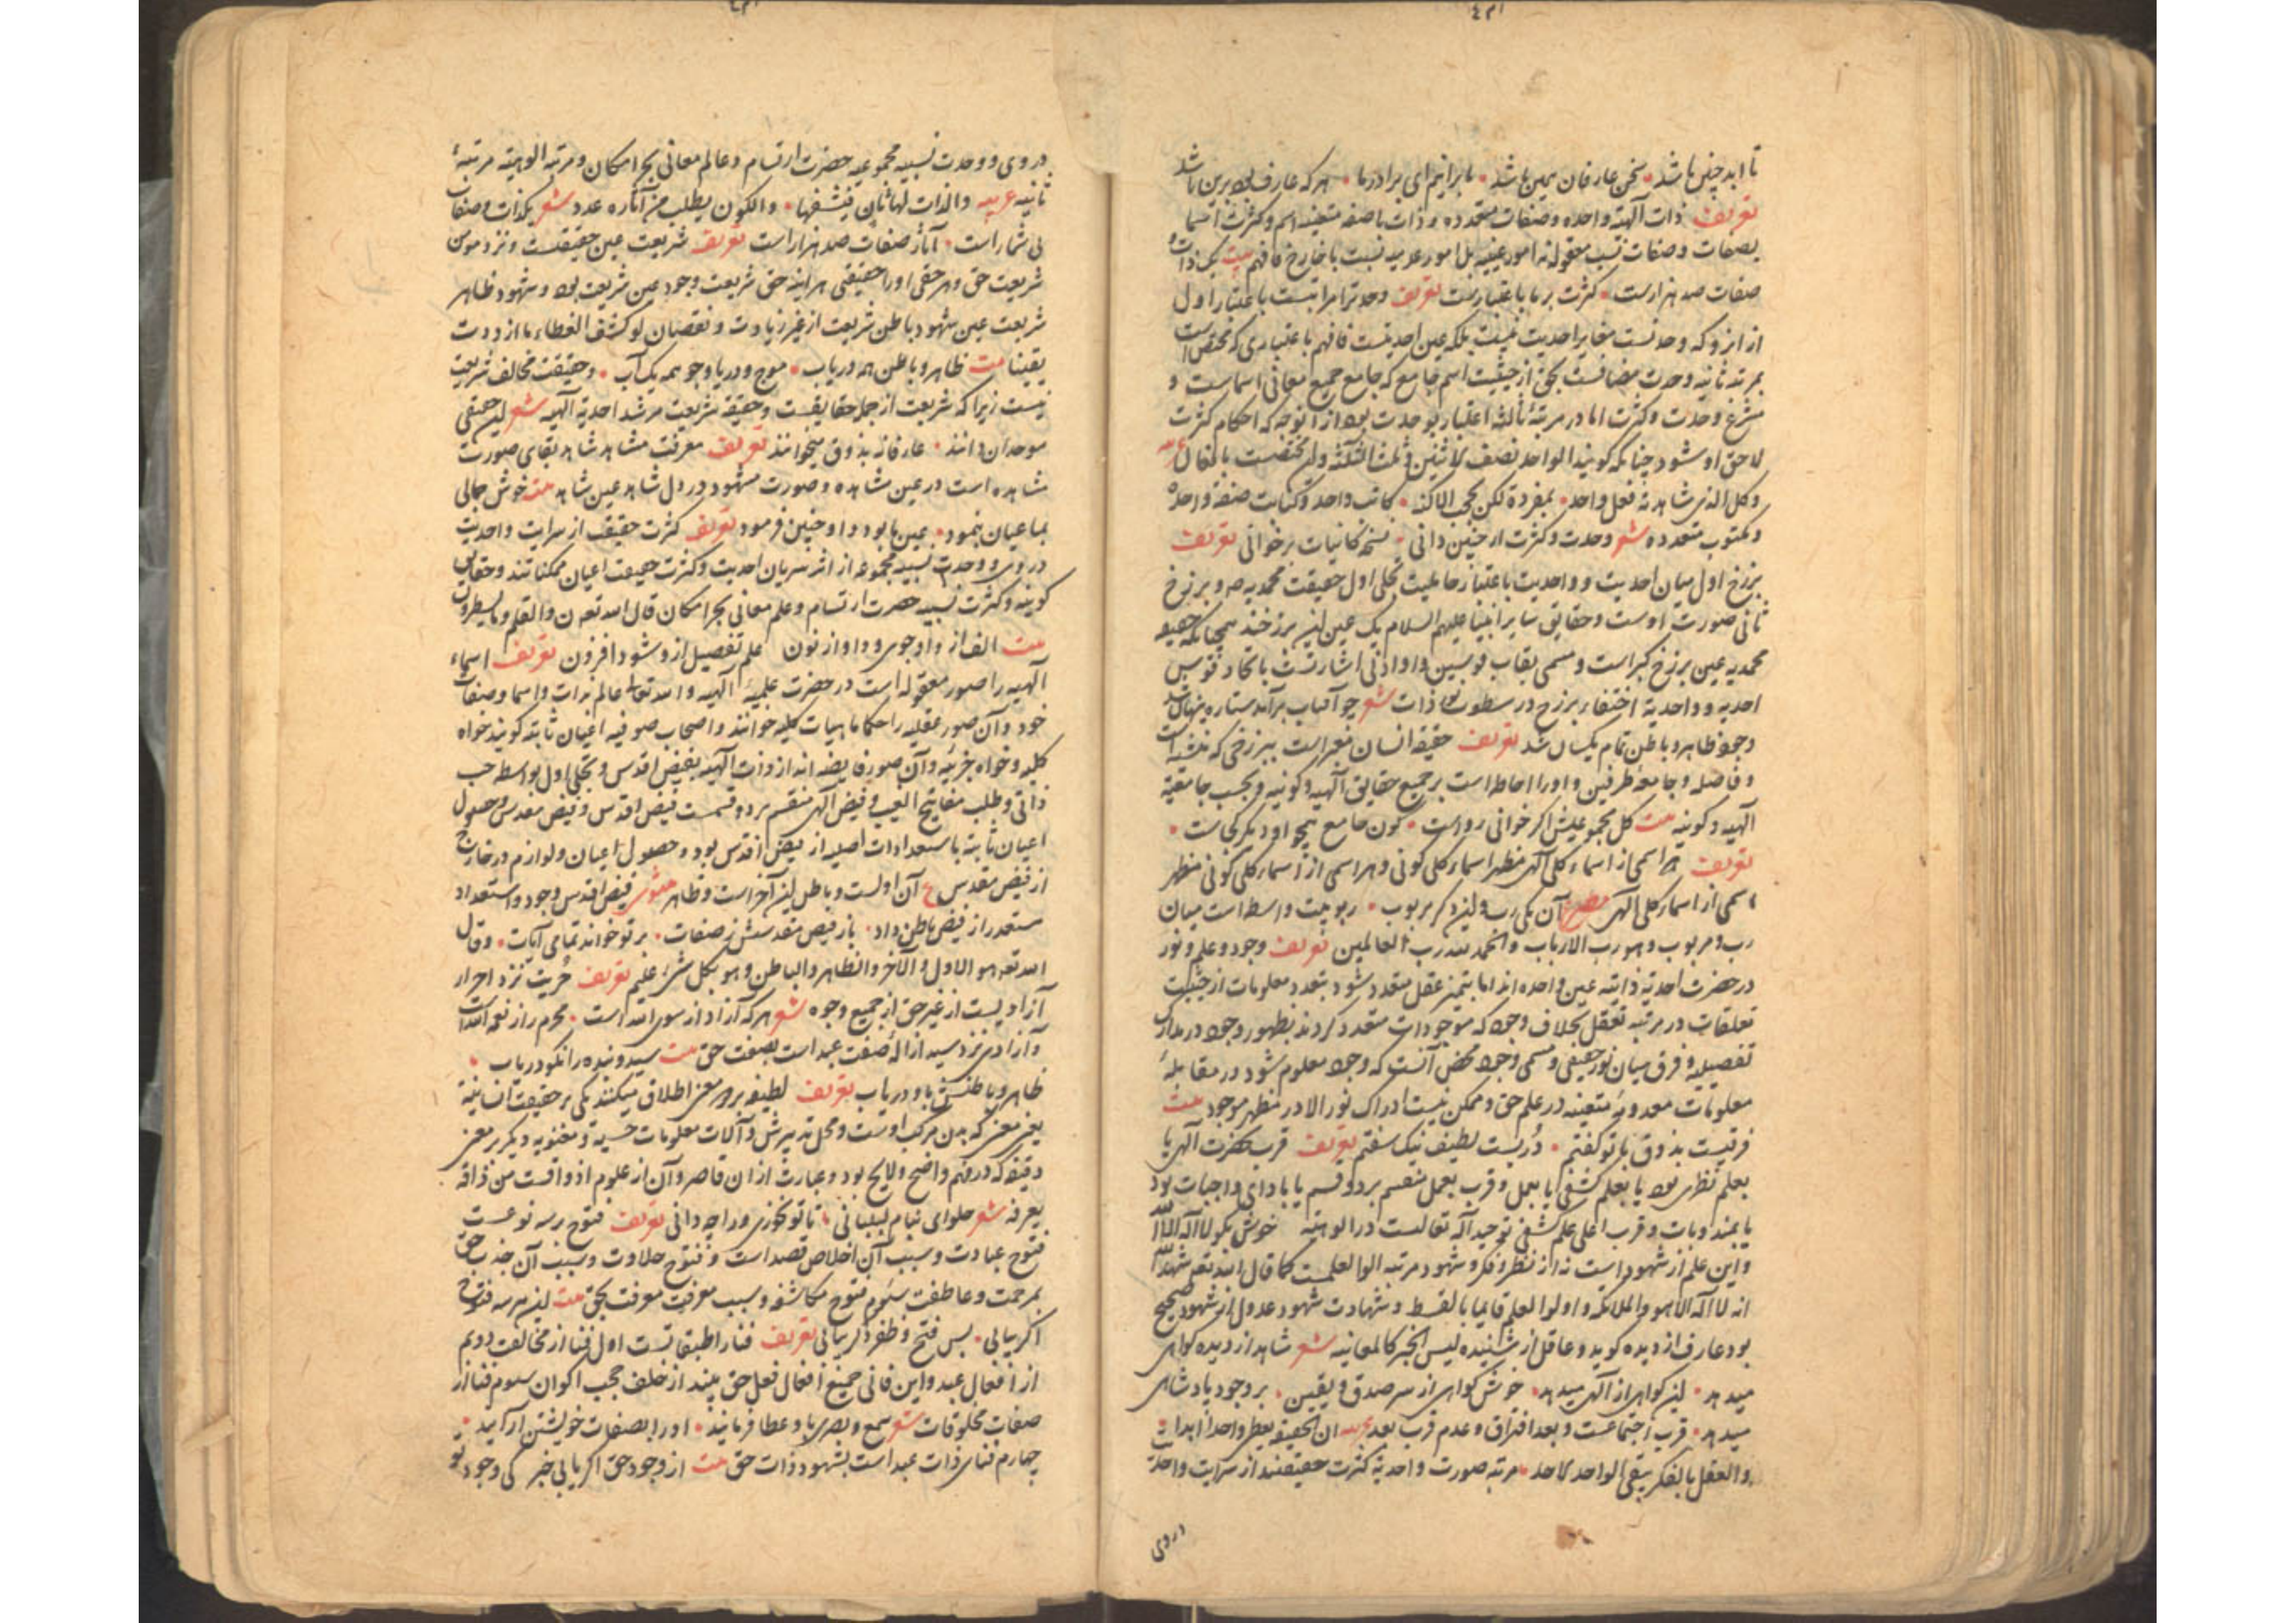 تا ابد چنین باشد سخن عارفان همین باشد ما برانیم ای برادر ما هر که عارف بود برین باشد
تعریف ذات الهیه واحده وصفات متعدده و ذات با صفه متعینه اسم وکثرت اسما
بصفات وصفات نسب معقوله نه امور عینیه بل امور عدمیه نسبت با خارج فافهم بیت یک ذات و
صفات صد هزارست کثرت بر ما باعتبارست تعریف وحدترا مراتبست باعتبار اول
از انرو که وحدتست مغایر احدیت نیست بلکه عین احدیتست فافهم باعتباری که مختص است
بمرتبه ثانیه وحدت مضافست بحق از حیثیت اسم جامع که جامع جمیع معانی اسماست و
وحدت وکثرت اما در مرتبه ثالثه اعتبار بوحدت بود از انوجه که احکام کثرت
لاحق او شود چنانکه گویند الواحد نصف الاثنین و ثلث الثلثه
وکل الذی شاهدته فعل واحد بمفرده لکن بحجب الاکنه کاتب واحد وکتابت صفة واحده
ومکتوب متعدده شعر وحدت وکثرت ار چنین دانی نسخه کائنات برخوانی تعریف
برزخ اول میان احدیت و واحدیت باعتبار تجلی اول حقیقت محمدیه ص و برزخ
ثانی صورت اوست وحقایق سایر انبیا علیهم السلام یک عین این برزخند همچنانکه حقیقة
محمدیه عین برزخ کبراست و مسمی بقاب قوسین و او ادنی اشارتست باتحاد قوسین
احدیه و واحدیة اختفاء برزخ در سطوت ذات شعر چو آفتاب برآمد ستاره پنهان شد
وجود ظاهر و باطن تمام یکسان شد تعریف حقیقة انسان
و فاصله و جامعه طرفین و اورا احاطه است بر جمیع حقایق الهیه وکونیه و بحسب جامعیة
الهیه وکونیه بیت کل مجموعیش اگر خوانی رواست کون جامع همچو او دیگر کجاست
تعریف هر اسمی از اسماء کلی الهی مظهر اسماء کلی کونی و هر اسمی از اسماء کلی کونی مظهر
اسمی از اسماء کلی الهی آن یکی رب و این دگر مربوب ربوبیت واسطه است میان
رب و مربوب و هو رب الارباب والحمد لله رب العالمین تعریف وجود و علم و نور
در حضرت احدیة ذاتیه عین واحده اند اما بتمیز عقل متعدد شود بتعدد معلومات از حیثیت
تعلقات در مرتبه تعقل بخلاف وجود که موجودات متعدد گردند بظهور وجود در مدارک
تفصیلیه و فرق میان نور حقیقی و مسمی وجود محض آنست که وجود معلوم شود در مقابلهٔ
معلومات معدومهٔ متعینه در علم حق و ممکن نیست ادراک نور الا در مظهر موجود بیت
فرقیست بذوق با تو گفتم دُریست لطیف نیک سفتم تعریف قرب بحضرت الهی یا
بعلم نظری بود یا بعلم کشفی یا بعمل و قرب بعمل منقسم بر دو قسم یا باداى واجبات بود
یا بمندوبات و قرب اعلی علم کشفی توحید اله تعالیست در الوهیته خوش بگو لا اله الا الله
و این علم از شهود است نه از نظر و فکر و شهود مرتبه اولوا العلمست کما قال الله تعالی شهد الله
انه لا اله الا هو والملائکه و اولوا العلم قایما بالقسط و شهادت شهود عدول از شهود صحیح
بود عارف از دیده گوید و عاقل از شنیده لیس الخبر کالمعاینه شعر شاهد از دیده گواهی
میدهد این گواهی از الهی میدهد خوش گواهی از سر صدق و یقین بر وجود پادشاهی
میدهد قرب اجتماعست و بعد افتراق و عدم قرب بعد عربیه ان الحقیقه یعطی واحدا ابدا
والعقل بالفکر ینفی الواحد الاحد مرتبه صورت واحدیة کثرت حقیقتند از سرایت واحدیت
در وی
در وی و وحدت نسبیه مجموعیه حضرت ارتسام و عالم معانی بحر امکان و مرتبه الوهیته مرتبهٔ
ثانیه عربیه والذات لها ثان والکون یطلب من آثاره عدد شعر یکذات و صفات
بی شمار است آثار صفات صد هزار است تعریف شریعت عین حقیقتست و نزد موحد
شریعت حق و هر حقی اورا حقیقتی هر اینه حق شریعت وجود عین شریعت بود و شهود ظاهر
شریعت عین شهود باطن شریعت از غیر زیادت و نقصان لو کشف الغطاء ما ازددت
یقینا بیت ظاهر و باطن همه دریاب موج و دریا و جو همه یک آب و حقیقت مخالف شریعت
نیست زیرا که شریعت از جمله حقایقست و حقیقة شریعت مرشد احدیة الهیه شعر این حقیقی
موحدان دانند عارفانه بذوق میخوانند تعریف معرفت مشاهد شاهد بقای صورت
مشاهده است در عین مشاهده و صورت مشهود در دل شاهد عین شاهد بیت خوش جمالی
بما عیان بنمود عین ما بود و او چنین فرمود تعریف کثرت حقیقت از سرایت واحدیت
در وی و وحدت نسبیه مجموعه از اثر سریان احدیت و کثرت حقیقت اعیان ممکناتند و حقایق
کونیه و کثرت نسبیه حضرت ارتسام و علم معانی بحر امکان قال الله تعالی ن والقلم وما یسطرون
بیت الف از واو جوی و واو از نون علم تفصیل ازو شود افزون تعریف اسماء
الهیه را صور معقوله است در حضرت علمیهٔ الهیه و الله تعالی عالم بذات و اسما و صفات
خود و آن صور عقلیه را حکما ماهیات کلیه خوانند و اصحاب صوفیه اعیان ثابته گویند خواه
کلیه و خواه جزئیه و آن صور فایضه اند از ذات الهیه بفیض اقدس و تجلی اول بواسطه حب
ذاتی و طلب مفاتیح الغیب و فیض الهی منقسم بر دو قسمت فیض اقدس و فیض مقدس و حصول
اعیان ثابته باستعدادات اصلیه از فیض اقدس بود و حصول اعیان و لوازم در خارج
از فیض مقدس ع آن اولست و باطن این آخر است و ظاهر مثنوی فیض اقدس وجود و استعداد
مستعد را ز فیض باطن داد باز فیض مقدسش ز صفات بر تو خواند تمامی آیات و قال
الله تعالی هو الاول والآخر والظاهر والباطن وهو بکل شیء علیم تعریف حُریت نزد احرار
آزادیست از غیر حق از جمیع وجوه شعر هر که آزاد از سوی الله است محرم راز نعمه الله است
و آزادی نزد سید ازالهٔ صفت عبد است بصفت حق بیت سید و بنده را نکو دریاب
ظاهر و باطنش باو دریاب تعریف لطیفه بر دو معنی اطلاق میکنند یکی بر حقیقت انسانیة
یعنی معنی که بدن مرکب اوست و محل تدبیرش و آلات معلومات حسیة و معنویه و دیگر بر معنی
دقیقه که در فهم واضح و لایح بود و عبارت از ان قاصر و آن از علوم اذواقست من ذاقه
یعرفه شعر حلوای نبات بلبانی تا تو نخوری ورا چه دانی تعریف فتوح بر سه نوعست
فتوح عبادت و سبب آن اخلاص قصد است و فتوح حلاوت و سبب آن جذب حق
بمرحمت و عاطفت سیوم فتوح مکاشفه و سبب معرفت معرفت بحق بیت این هر سه فتوح
اگر بیابی بس فتح و ظفر ازو بیابی تعریف فنا را طبقاتست اول فنا از مخالفت دویم
از افعال عبد و این فانی جمیع افعال فعل حق بیند از خلف حجب اکوان سیوم فنا از
صفات مخلوقات شعر سمع و بصری باو عطا فرماید او را بصفات خویشتن آراید
چهارم فنای ذات عبد است بشهود ذات حق بیت از وجود حق اگر یابی خبر کی وجود تو